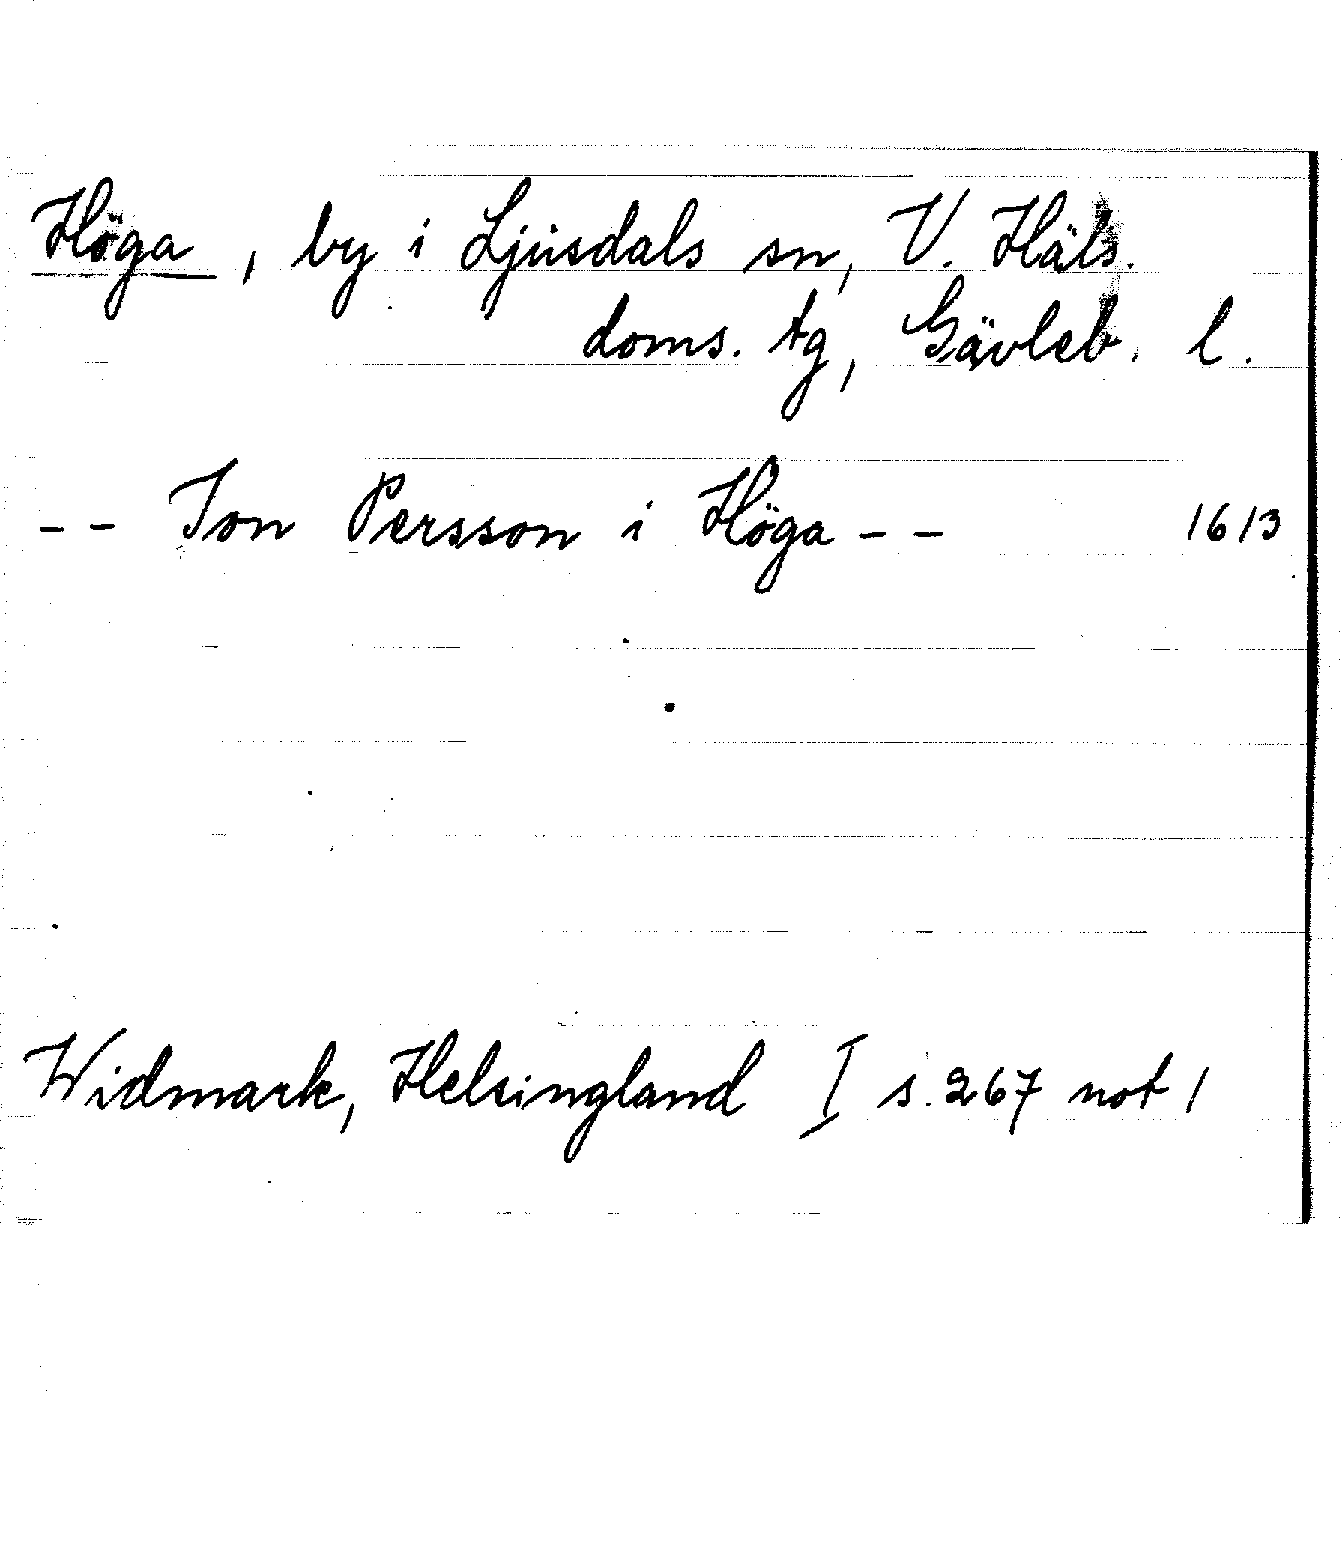 Höga, by i Ljusdals sn, V. Häls.
doms. tg, Gävleb. l.
-- Jon Persson i Höga -- 1613
Widmark, Helsingland I s. 267 not 1